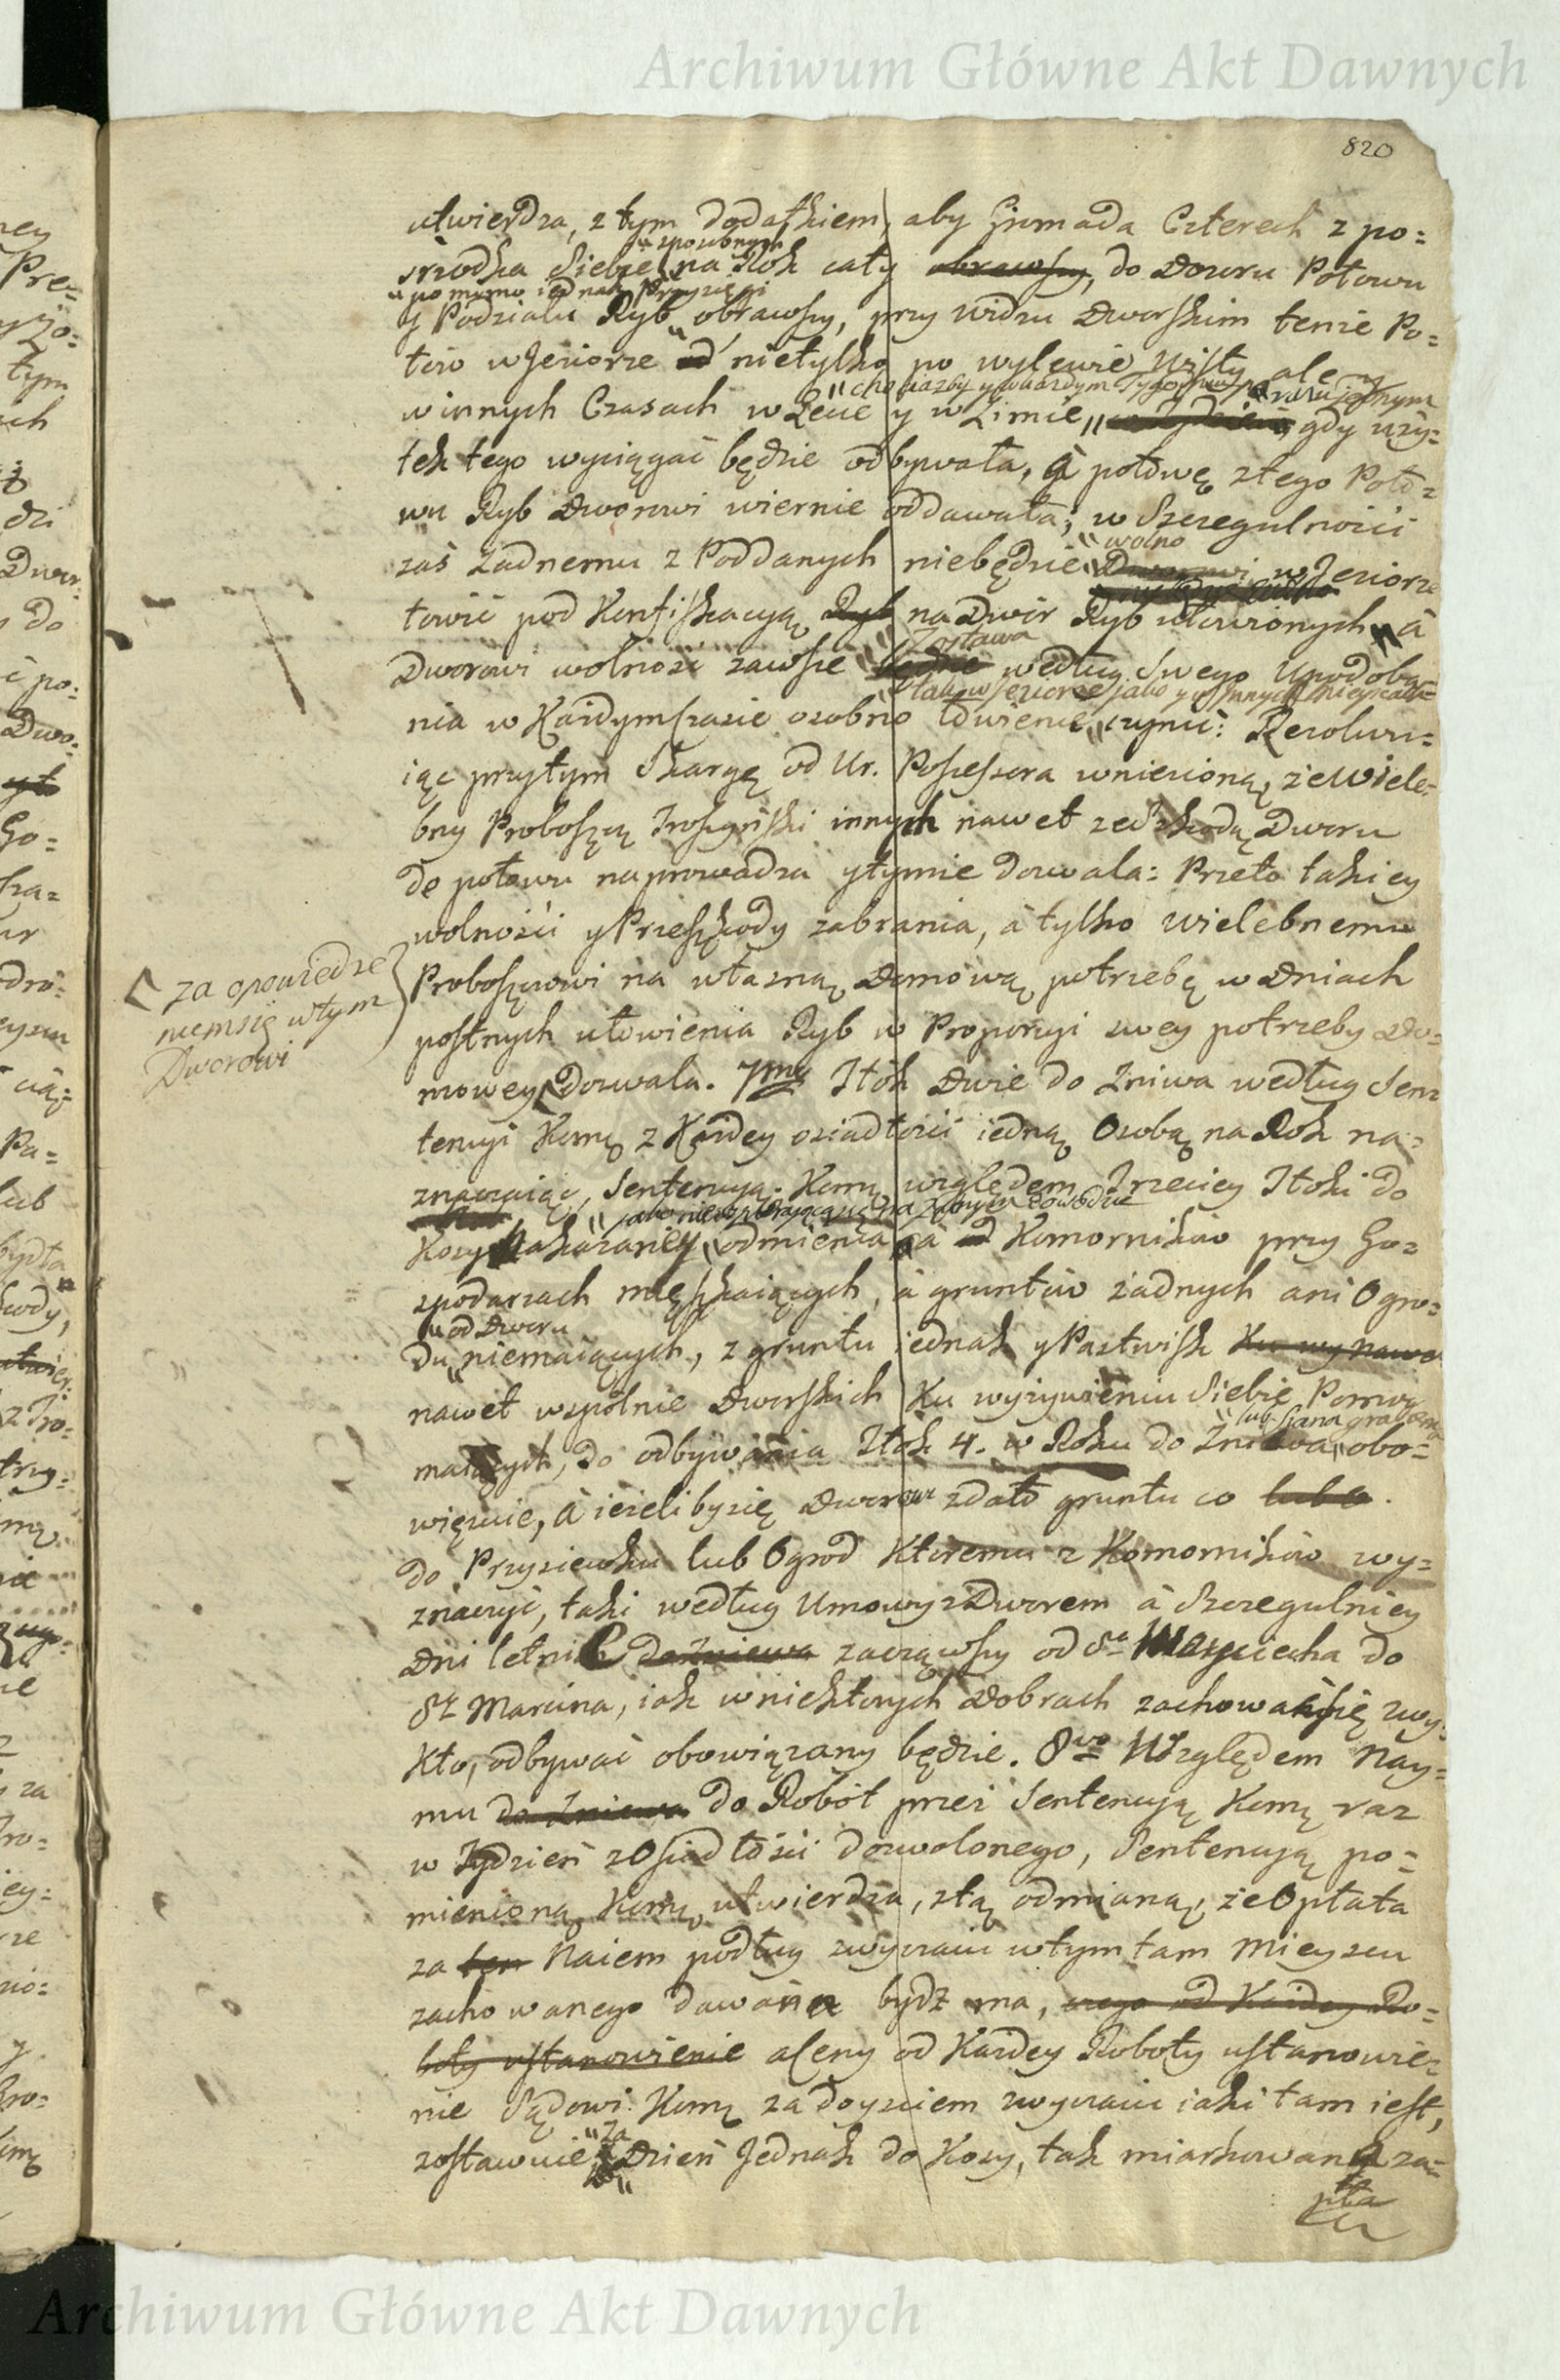 Archiwum Główne Akt Dawnych
820
utwierdza, z tym dodatkiem, aby Gromada Czterech z po=
srzodka Siebie na Rok cały obrawszy, do Dozoru Połowu
y Podziału Ryb obrawszy, przy widzu Dworskim tenże Po=
łow w Jeziorze nietylko po wylewie Wisły ale y
w innych Czasach w Lecie y w Zimie gdy uży=
tek tego wyciągać będzie odbywała, à połowę z tego Poło=
wu Ryb Dworowi wiernie oddawała; w Szczegulności
wolno
zaś żadnemu z Poddanych niebędzie w Jeziorze
łowić pod Konfiskacyą Ryb na Dwór Ryb ułowionych à
Zostawa
Dworowi wolność zawsze według Swego Upodoba=
tak w Jeziorze jako y w innych mieyscach
nia w Każdym Czasie osobno łowienie czynić: Rezolwu=
iąc przytym Skargę od Ur. Possessora wniesioną, że Wiele=
bny Proboszcz innych nawet ze Szkodą Dworu
do połowu naprowadza y tymże dozwala: Przeto takiey
wolności y Przeszkody zabrania, à tylko Wielebnemu
Proboszczowi na własną Domową potrzebę w Dniach
za opowiedze
niem się w tym
Dworowi
postnych ułowienia Ryb w Proporcyi swey potrzeby Do=
mowey Dozwala. 7mo Tłok Dwie do Żniwa według Sen=
tencyi Komj z Każdey osiadłości iedną Osobą na Rok na=
znaczaiąc, Sentencyą Komj względem Trzeciey Tłoki do
Kosy Nakazaney odmienia à Komornikow przy Go=
spodarzach mieszkaiących, à gruntow żadnych ani Ogro=
od Dworu
du niemaiących, z gruntu iednak y Pastwisk Ku wy nawe
nawet wspólnie Dworskich Ku wyżywieniu Siebie Pomoc
lub Siana grabienia
maiących, do odbywania Tłok 4. w Roku do Żniwa obo=
więzuie, à ieżeliby się Dworowi zdało gruntu co lub o
do Przysiewku lub Ogrod Ktoremu z Komornikow wy=
znaczyć, taki według Umowy z Dworem à Szczegulniey
Dni letnie do żniwa zacząwszy od Sgo Woyciecha do
Sgo Marcina, iak w niektorych Dobrach zachować się zwy=
kło, odbywać obowiązany będzie. 8vo Względem Nay=
mu do Żniwa do Robót przez Sentencyą Komj raz
w Tydzień z Osiadłości dozwolonego, Sentencyą po=
mienioną Komj utwierdza, z tą odmianą, że Opłata
za ten Naiem podług zwyczaiu w tym tam Mieyscu
zachowanego dawana bydź ma, czego od Każdey Ro=
boty ustanowienie à Ceny od Każdey Roboty ustanowie=
nie Sądowi Komj za doyściem zwyczaiu iaki tam iest,
za
zostawuie Dzień Jednak do Kosy, tak miarkowana za=
pła
Archiwum Główne Akt Dawnych